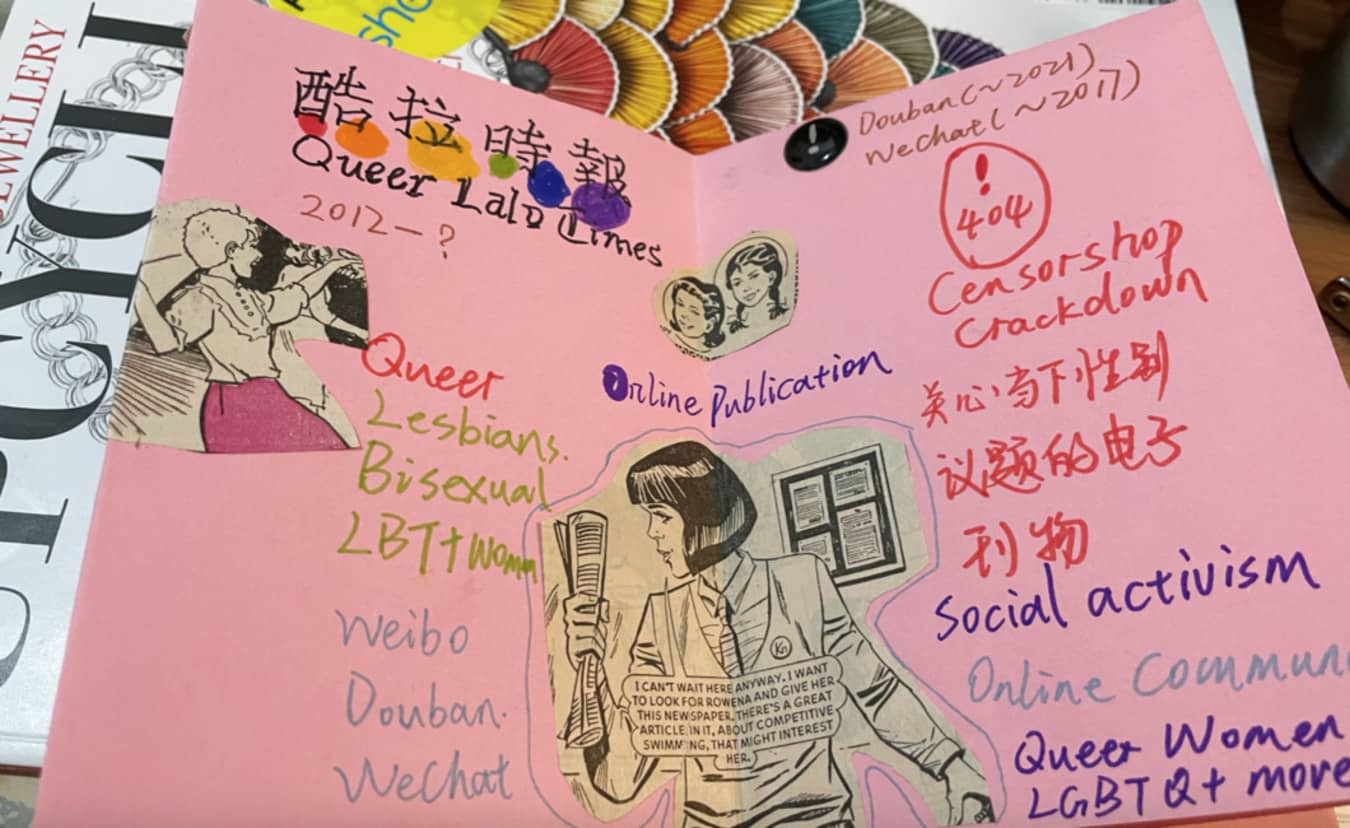 JEWELLERY
UPCYCL
sho
酷拉時報
Queer Lala Times
2012-?
Queer
Lesbians.
Bisexual
LBT+ women
Weibo
Douban.
WeChat
Online Publication
I CAN'T WAIT HERE ANYWAY. I WANT
TO LOOK FOR ROWENA AND GIVE HER
THIS NEWSPAPER. THERE'S A GREAT
ARTICLE IN IT, ABOUT COMPETITIVE
SWIMMING, THAT MIGHT INTEREST
HER.
!
Douban (~2021)
WeChat (~2017)
!
404
Censorshop
Crackdown
关心当下性别
议题的电子
刊物
Social activism
Online Commun
Queer Women
LGBTQ+ more